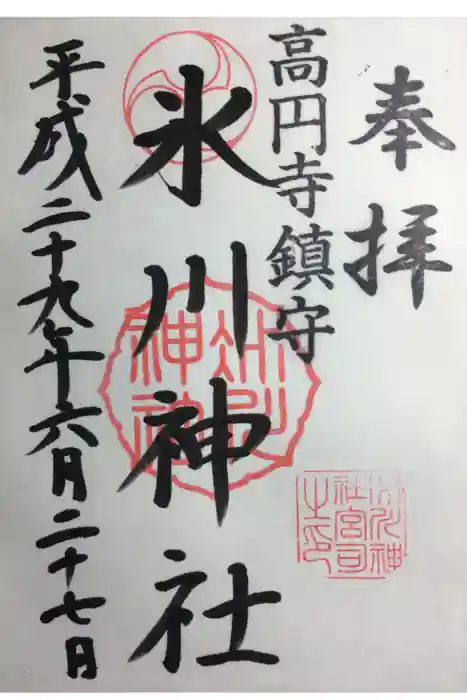 奉拝
高円寺鎮守
氷川神社
平成二十九年六月二十七日
氷川神社
氷川神社宮司之印